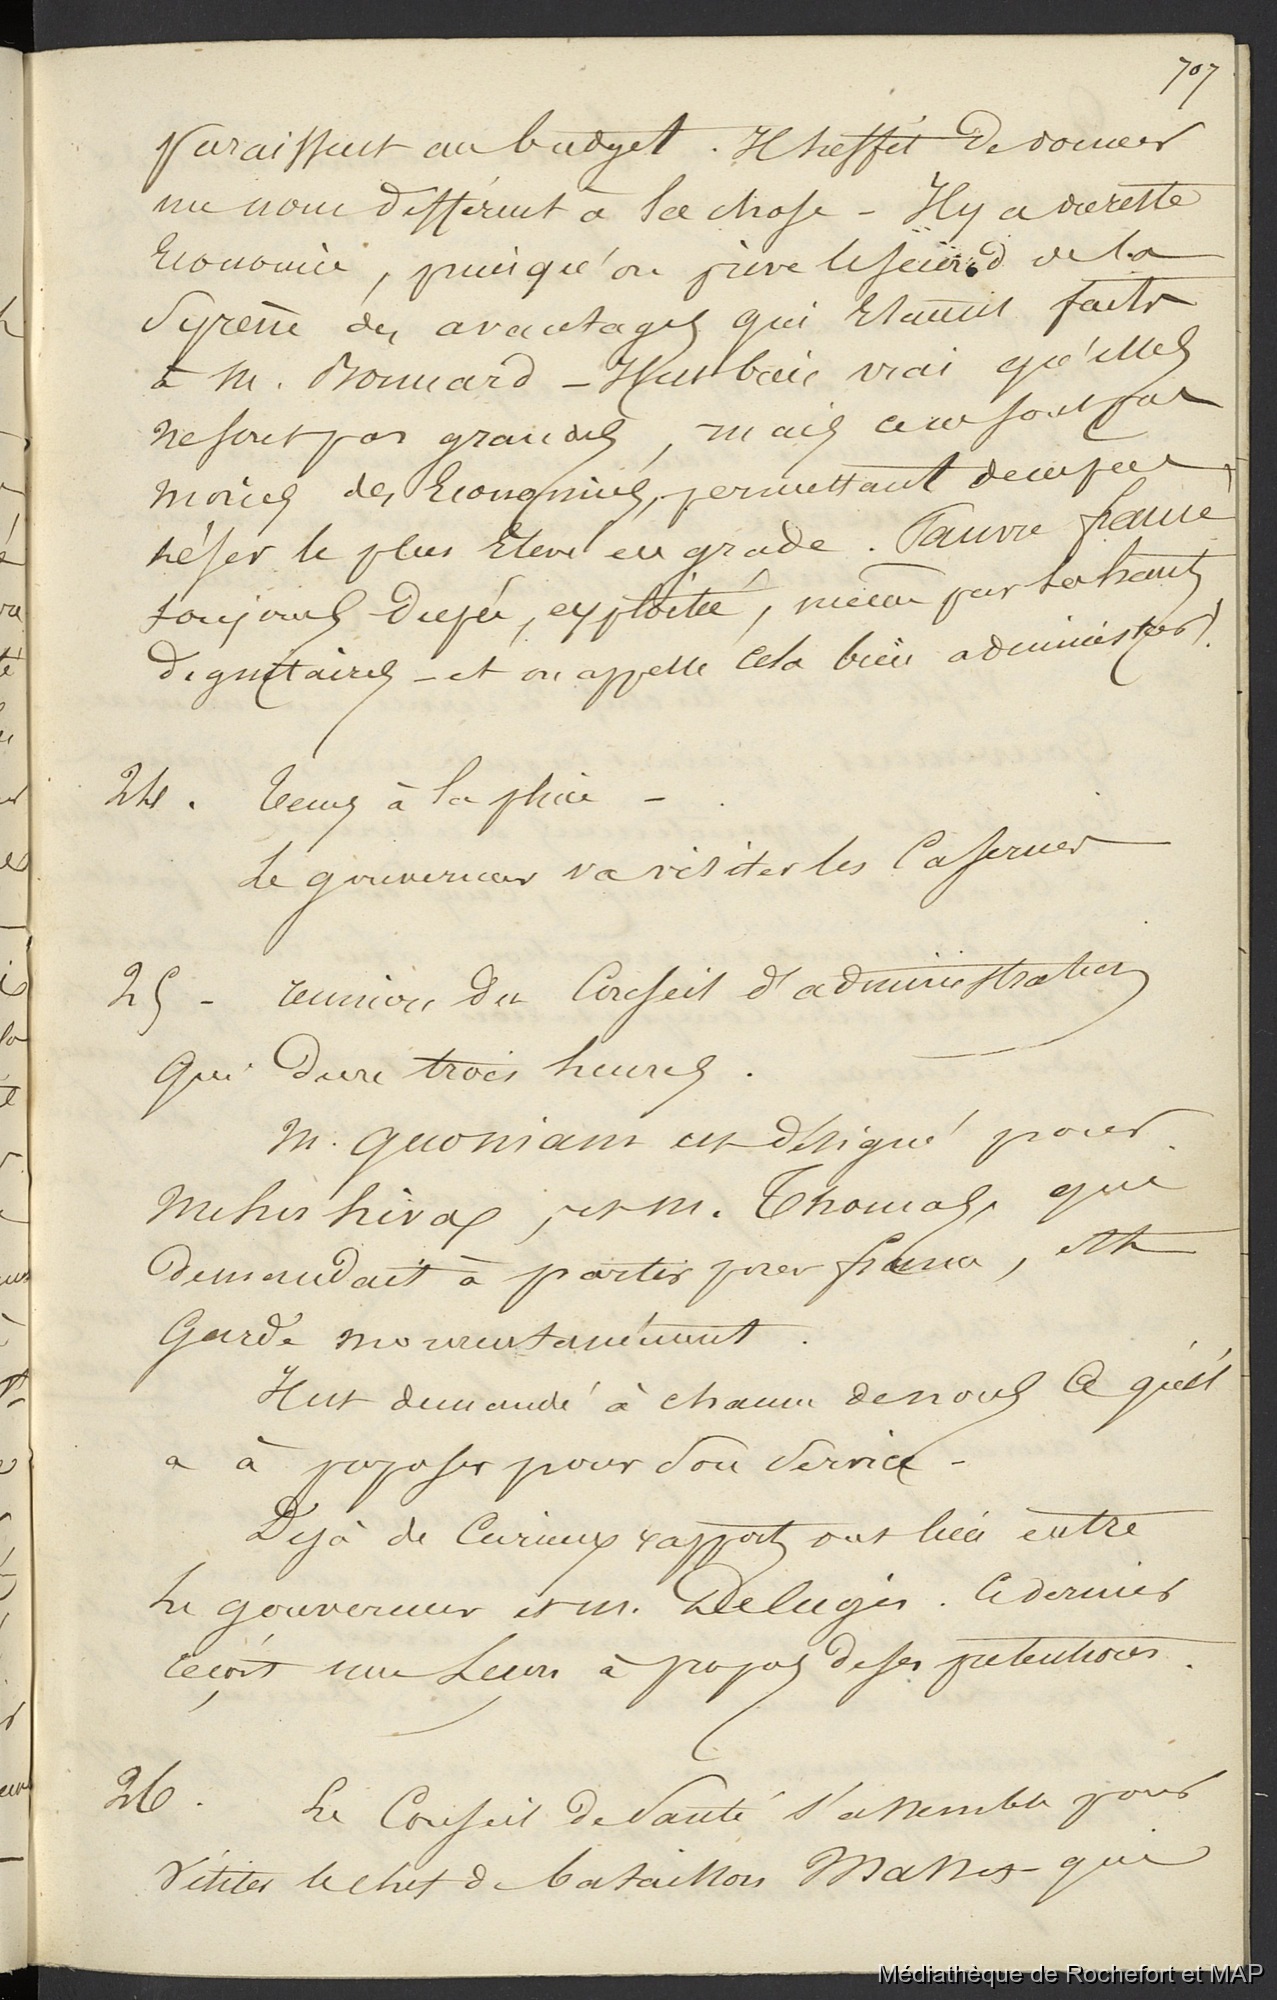 707
paraissent au budget. Il suffit de donner
un nom différent à la chose - Il y a du reste
Economie, puisqu'on prive le second de la
Syrène des avantages qui Etaient faits
à M. Bonnard - Il est bien vrai qu'elles
ne sont pas grandes, mais ce ne sont pas
moins des Economies, permettant de
le plus Elevé en grade. Pauvre france
toujours dupée, exploitée, même par les hauts
dignitaires - et on appelle cela bien administrer!
24. Temps à la pluie -
Le gouverneur va visiter les Casernes
25 - reunion du Conseil d'administration
qui dure trois heures.
M. Quoniam est désigné pour
, et M. Thomas, qui
demandait à partir pour france, est
Gardé momentanément.
Il est demandé à chacun de nous ce qu'il
a à proposer pour son service -
Dejà de Curieux rapports ont lieu entre
le gouverneur et M. Delugin. Ce dernier
reçoit une leçon à propos de ses prétentions.
26. Le Conseil de Santé s'assemble pour
visiter le chef de bataillon Masset qui
Médiathèque de Rochefort et MAP